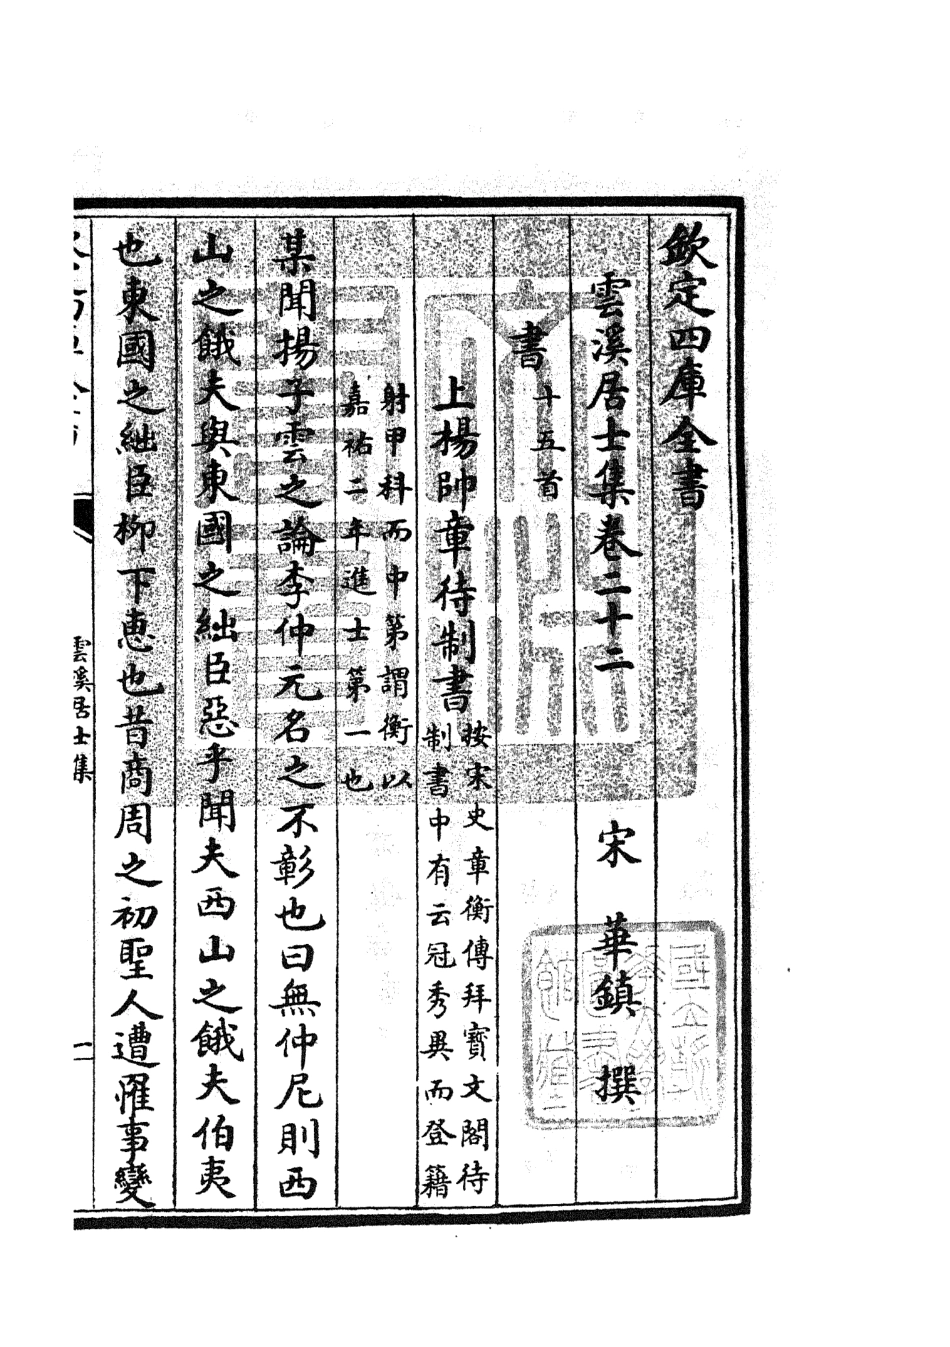 欽定四庫全書
雲溪居士集卷二十二
宋 華鎮 撰
書十五首
上楊帥章待制書按宋史章衡傳拜寶文閣待
制書中有云冠秀異而登籍
射甲科而中第謂衡以
嘉祐二年進士第一也
某聞揚子雲之論李仲元名之不彰也曰無仲尼則西
山之餓夫與東國之絀臣惡乎聞夫西山之餓夫伯夷
也東國之絀臣柳下惠也昔商周之初聖人遭罹事變
雲溪居士集
一